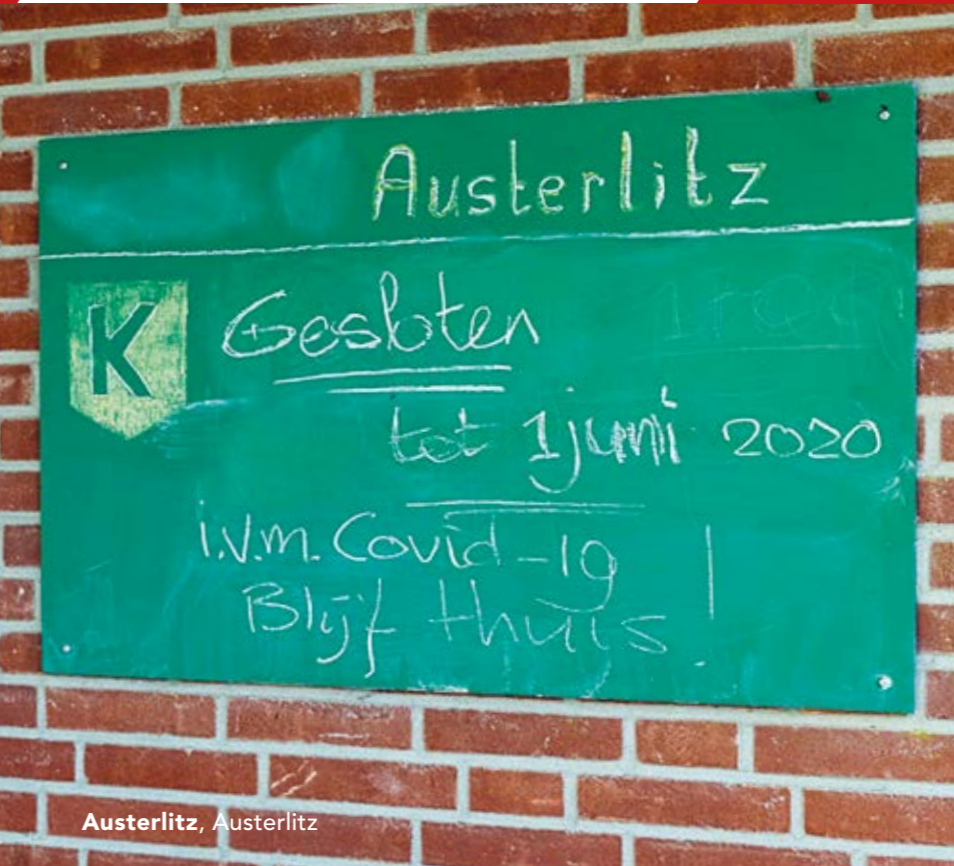 Austerlitz
K
Gesloten
tot 1 juni 2020
i.v.m. Covid-19
Blijf thuis!
Austerlitz, Austerlitz